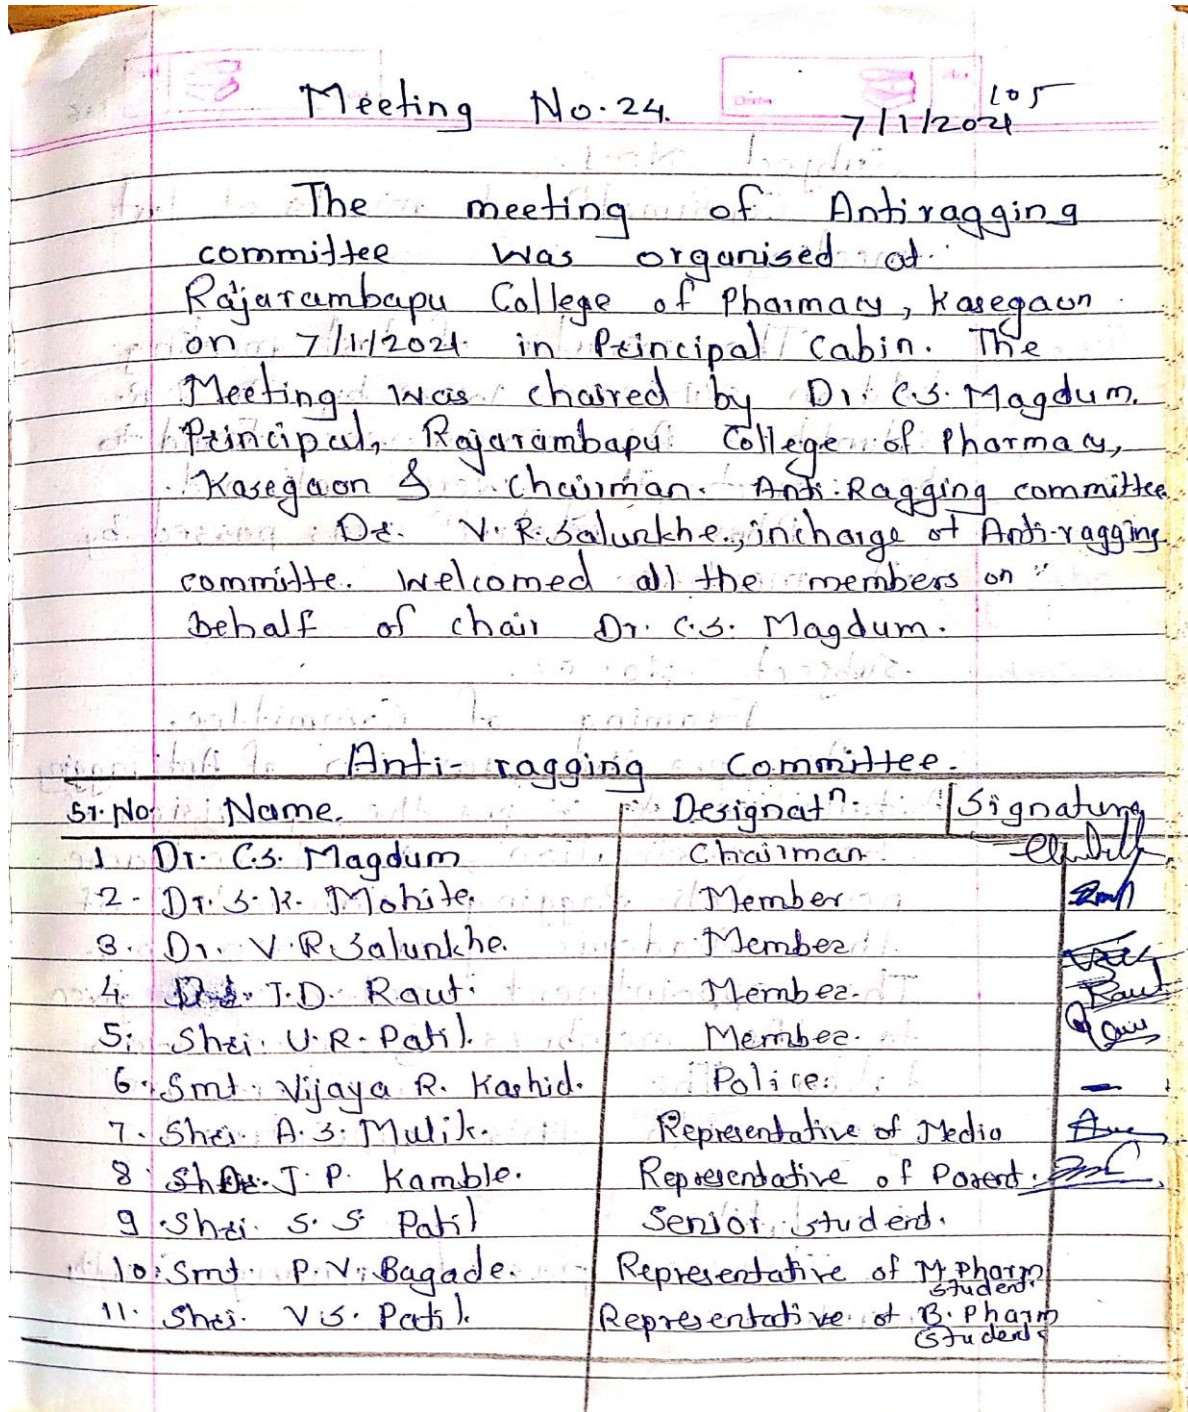 Meeting No. 24.
105
7/1/2021
The meeting of Antiragging
committee was organised at
Rajarambapu College of Pharmacy, Kasegaon
on 7/1/2021 in Principal Cabin. The
Meeting was chaired by Dr. C.S. Magdum.
Principal, Rajarambapu College of Pharmacy,
Kasegaon & Chairman. Anti-Ragging committee
Dr. V.R. Salunkhe., incharge of Anti-ragging
committe. Welcomed all the members on
behalf of chair Dr. C.S. Magdum.
Anti-ragging Committee.
Sr. No Name. Designatn. Signature
1 Dr. C.S. Magdum Chairman
2. Dr. S.K. Mohite. Member
3. Dr. V.R. Salunkhe. Member
4. J.D. Raut. Member. Raut
5. Shri. U.R. Patil. Member.
6. Smt. Vijaya R. Kashid. Police. -
7. Shri. A.S. Mulik. Representative of Media
8 Dr. J.P. Kamble. Representative of Parent.
9. Shri. S.S. Patil Senior student.
10. Smt. P.V. Bagade. Representative of M. Pharm
student.
11. Shri. V.S. Patil. Representative of B. Pharm
(student)